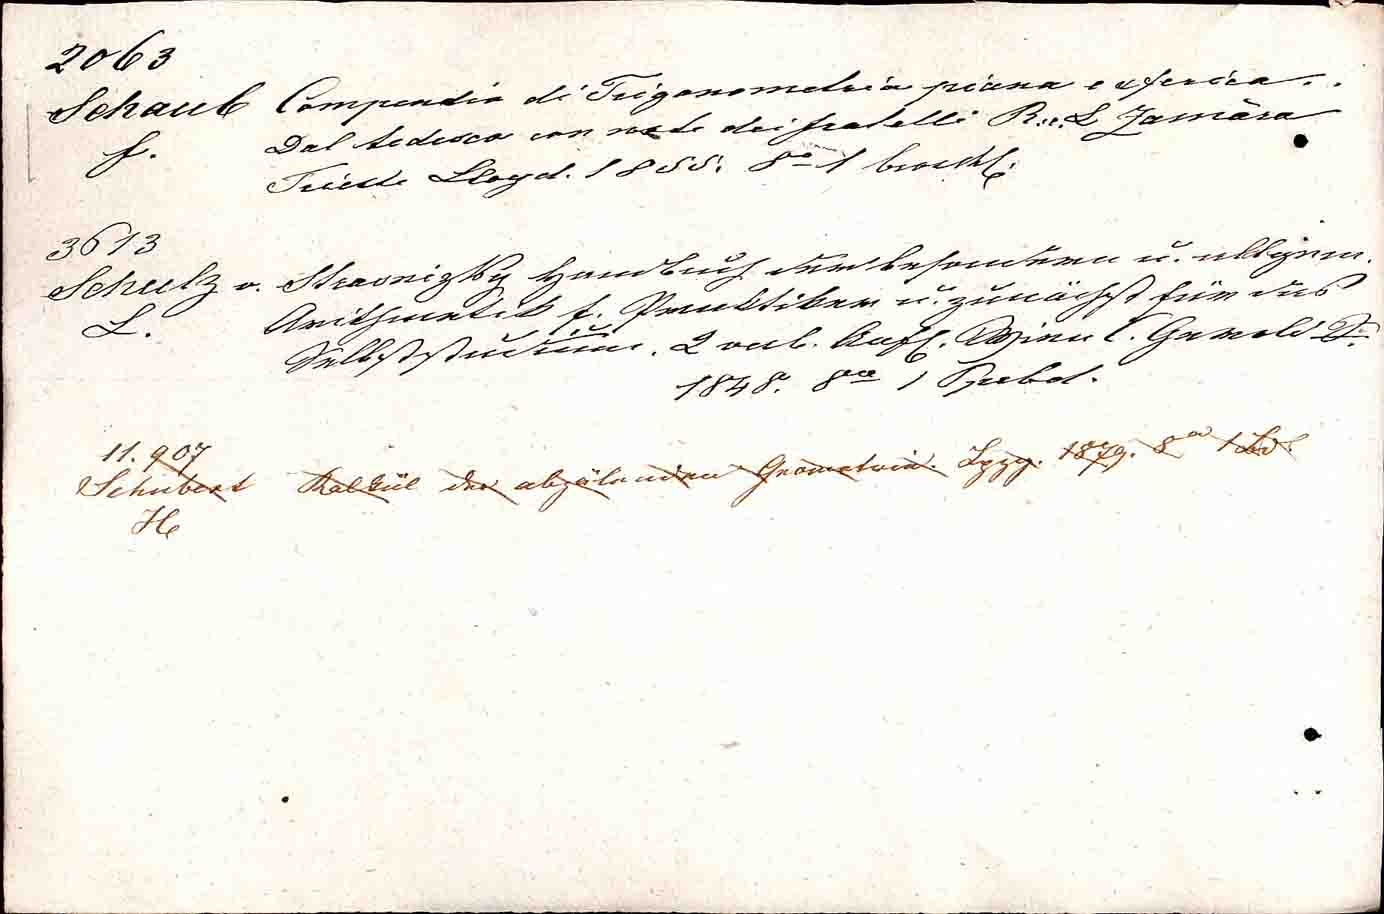 2063
Schaub Compendio di Trigonometria piana e sferica..
f. Dal tedesco con note dei fratelli R. e L Zamàra
Trieste Lloyd. 1855. 8º 1 brosch.
3613
Schulz v. Strasnizky Handbuch der besondern u. allgem.
L. Arithmetik f. Praktiker u. zunächst für das
Selbststudium. 2 verb. Aufl. Wien C. Gerold
1848. 8º 1
11.907
Schubert Kalkül der abzälenden Geometrie. Lpzg. 1879. 8º 1 Bd.
H